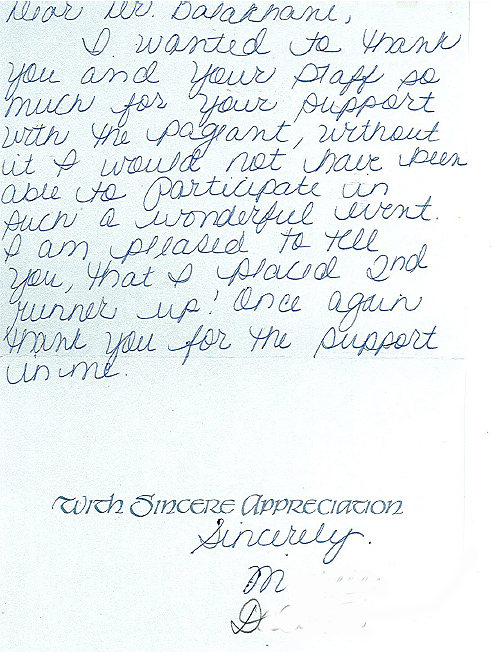 Dear Dr. Balakhani,
I wanted to thank
you and your staff so
much for your support
with the pageant, without
it I would not have been
able to participate in
such a wonderful event.
I am pleased to tell
you, that I placed 2nd
runner up! Once again
thank you for the support
in me.
With Sincere Appreciation
Sincerely.
M
D